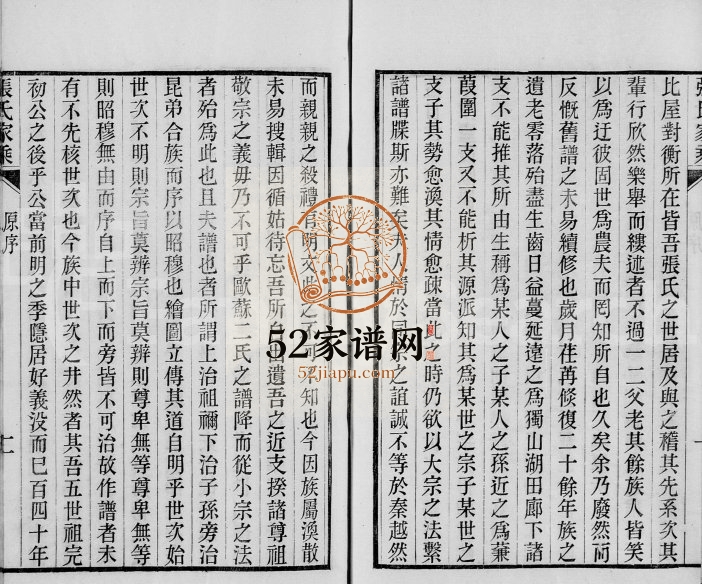 張氏家乘
比屋對衡所在皆吾張氏之世居及與之稽其先系次其
輩行欣然樂舉而縷述者不過一二父老其餘族人皆笑
以為迂彼固世為農夫而罔知所自也久矣余乃廢然而
反慨舊譜之未易續修也歲月荏苒倏復二十餘年族之
遺老零落殆盡生齒日益蔓延達之為獨山湖田廊下諸
支不能推其所由生稱為某人之子某人之孫近之為蒹
葭圍一支又不能析其源派知其為某世之宗子某世之
支子其勢愈渙其情愈疎當此之時仍欲以大宗之法繫
諸譜牒斯亦難矣人情於同之誼誠不等於秦越然
而親親之殺禮有明文之不可不知也今因族屬渙散
未易搜輯因循姑待忘吾所自遺吾之近支揆諸尊祖
敬宗之義毋乃不可乎歐蘇二氏之譜降而從小宗之法
者殆為此也且夫譜也者所謂上治祖禰下治子孫旁治
昆弟合族而序以昭穆也繪圖立傳其道自明乎世次始
世次不明則宗旨莫辨宗旨莫辨則尊卑無等尊卑無等
則昭穆無由而序自上而下而旁皆不可治故作譜者未
有不先核世次也今族中世次之井然者其吾五世祖完
初公之後乎公當前明之季隱居好義没而巳百四十年
張氏家乘
原序
二
52家谱网
52jiapu.com